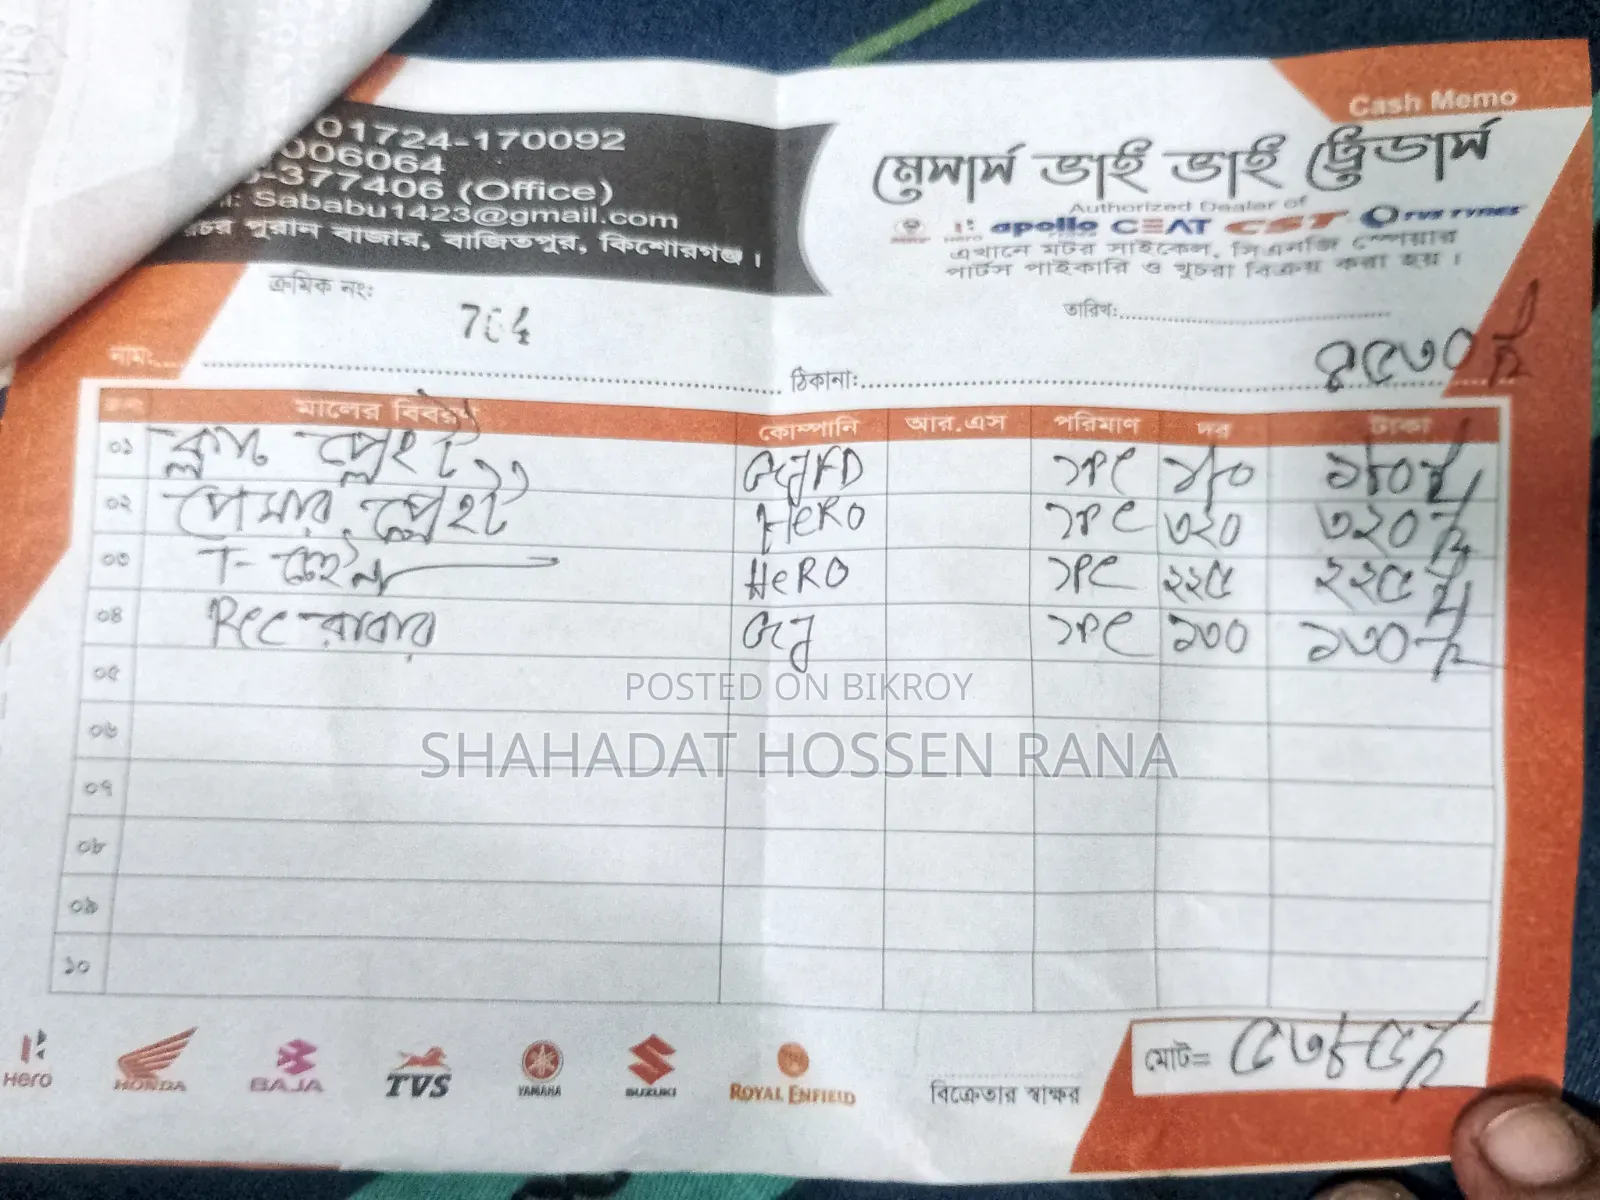 Cash Memo
01724-170092
006064
-377406 (Office)
Sababu1423@gmail.com
পুরান বাজার, বাজিতপুর, কিশোরগঞ্জ।
মেসার্স ভাই ভাই ট্রেডার্স
Authorized Dealer of
HERO apollo CEAT CST TVS TYRES
এখানে মটর সাইকেল, সিএনজি স্পেয়ার
পার্টস পাইকারি ও খুচরা বিক্রয় করা হয়।
ক্রমিক নং: 764
তারিখ:
নাম: ঠিকানা:
মালের বিবরণ কোম্পানি আর.এস পরিমাণ দর টাকা
০১ ক্লাস প্লেইট 1PC
০২ পেসার প্লেইট HeRO 1PC ৩২০ ৩২০/-
০৩ T- চেইন HeRO 1PC ২২৫ ২২৫/-
০৪ Rec রাবার 1PC ১৩০ ১৩০/-
০৫
০৬
০৭
০৮
০৯
১০
POSTED ON BIKROY
SHAHADAT HOSSEN RANA
Hero HONDA BAJA TVS YAMAHA SUZUKI ROYAL ENFIELD
বিক্রেতার স্বাক্ষর
মোট=